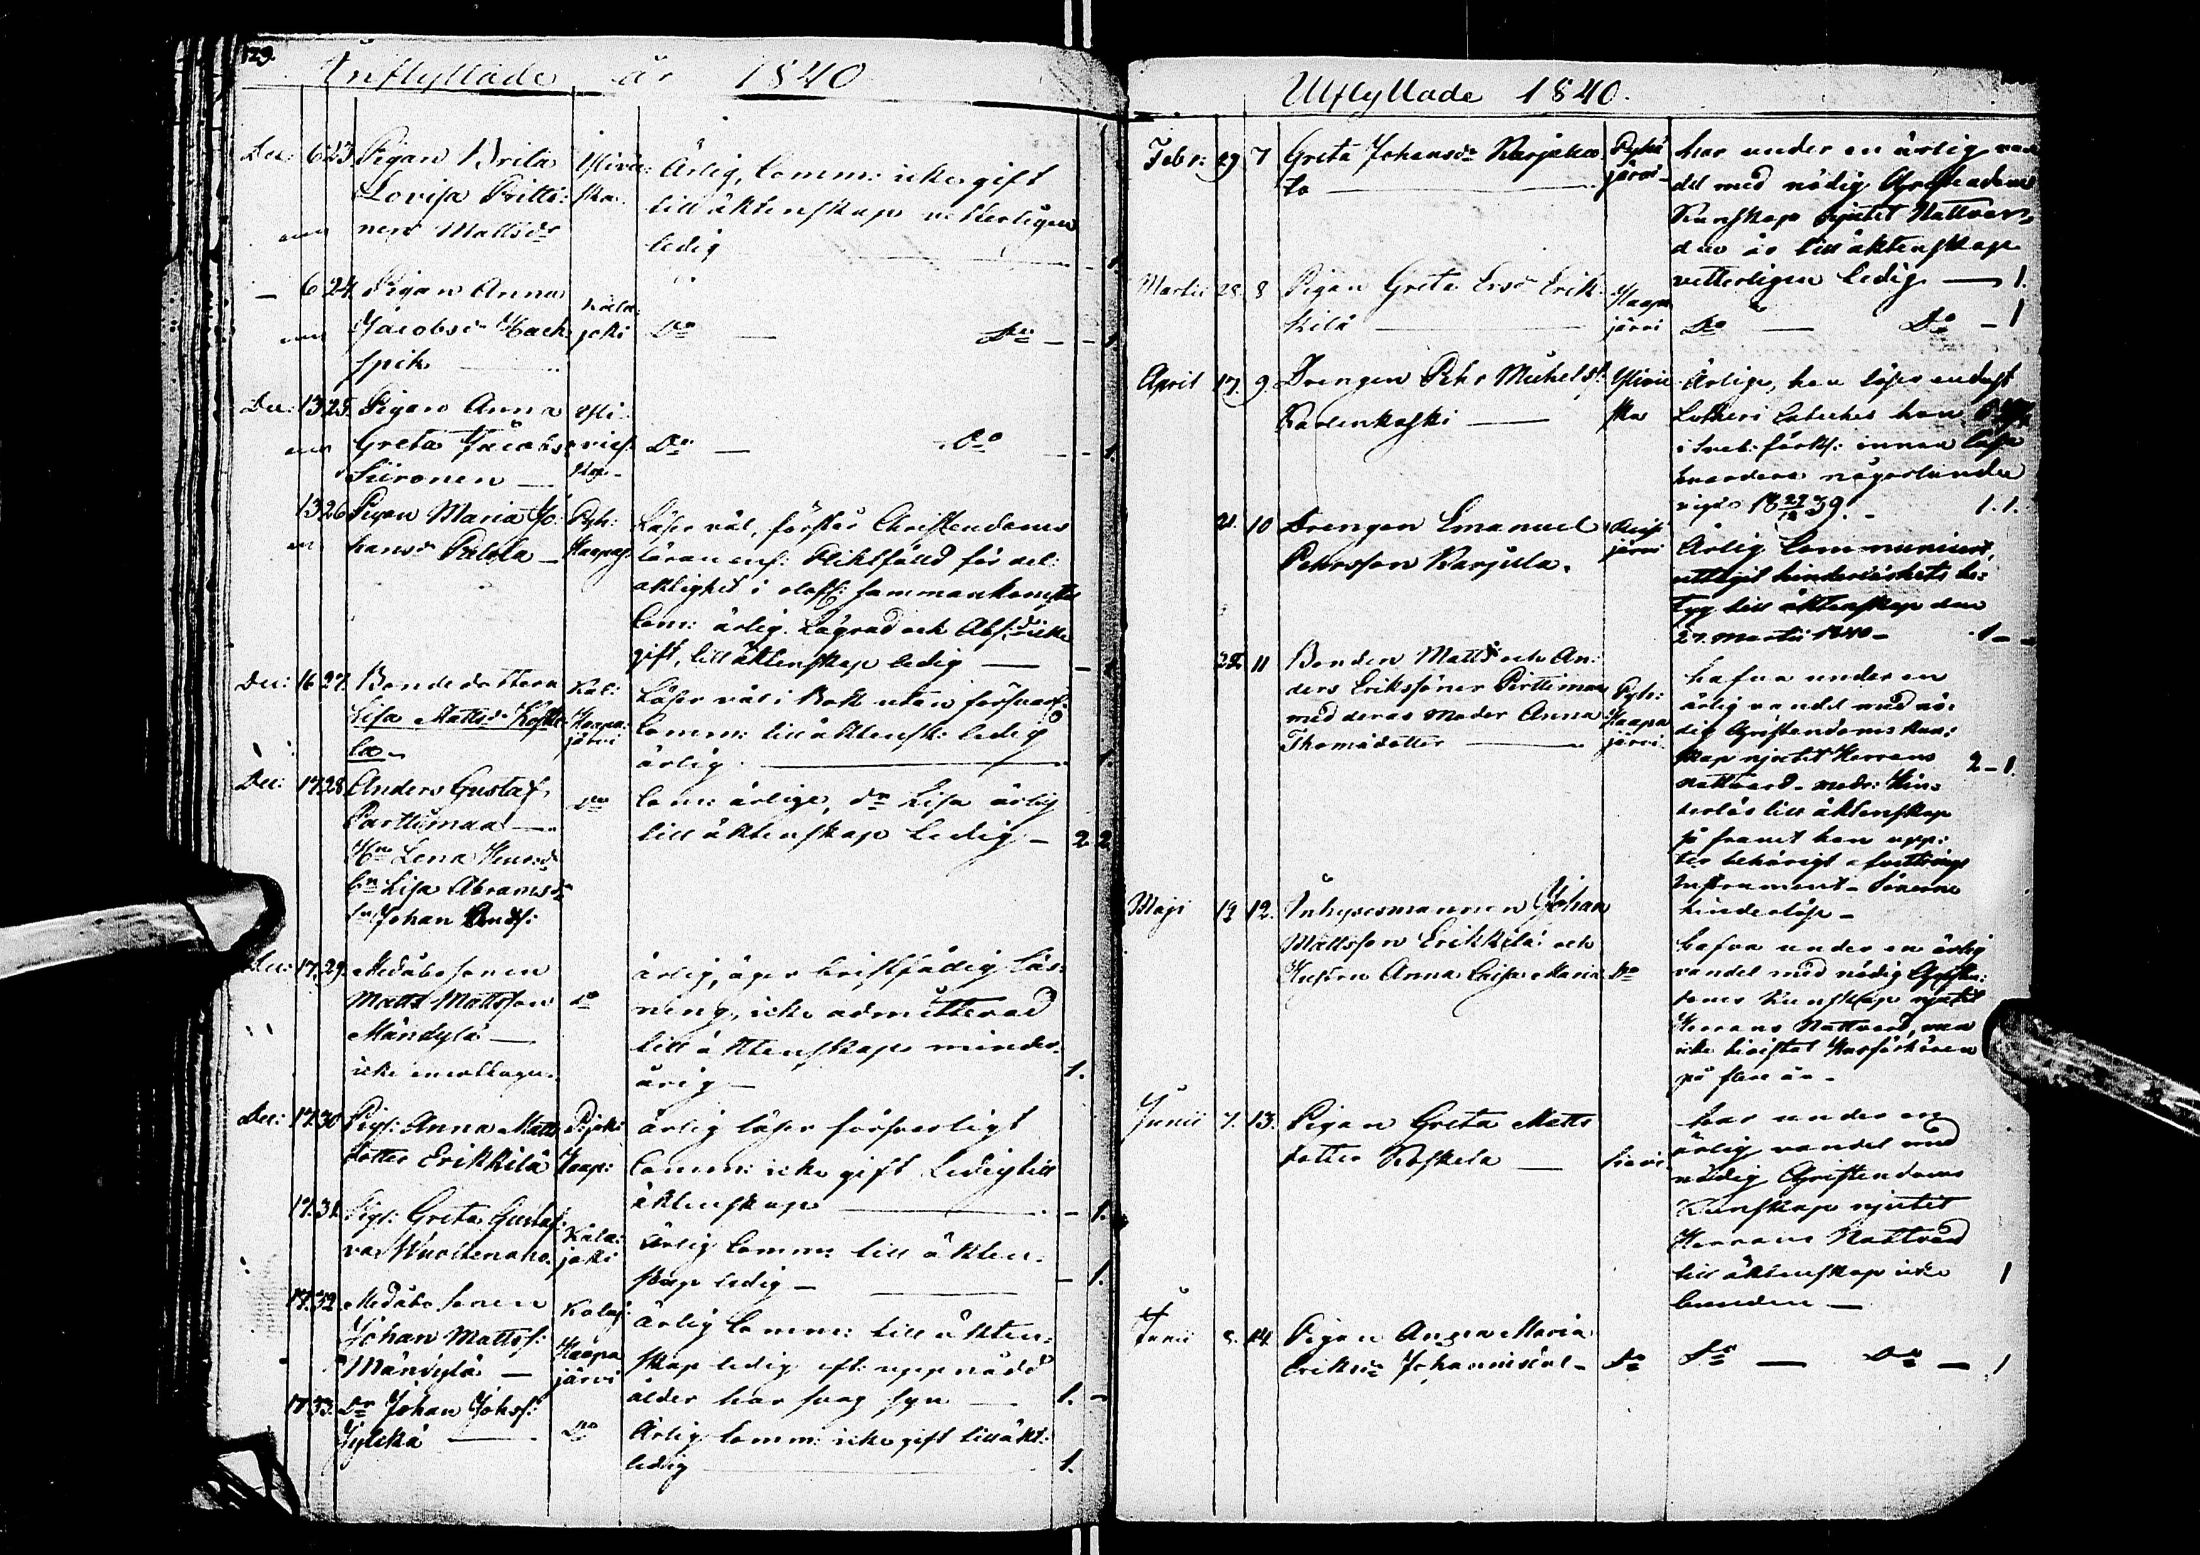 129.
Inflyttade år 1840
Dec: 6 23. Pigan Brita Ylivie:
Lovisa Pritti: ska.
nen Mattsdr
Ärlig, Comm: icke gift
till äktenskap vetterligen
ledig 1.
— 6 24. Pigan Anna Kala:
Jacobsdr joki
spik
Do — Do — 1.
Dec: 13 25. Pigan Anna
Greta Jacobs:
Siironen
Do — Do — 1.
13 26. Pigan Maria Jo: Pyh:
hansdr Haapaj:
Läser väl, förstår Christendoms
läran
aktighet i sammankomster
Com: ärlig. Lagvad och icke
gift, till äktenskap ledig —
Dec: 16 27. Bondedottern Kal:
Lisa Mattsdr Koske: Haapa:
la järvi
Läser väl i Bok utan försvar:
Comm: till äktensk: ledig
ärlig 1.
Dec: 17 28. Anders Gustaf Do
Parttimaa
Hu Lena Henrsdr
Lisa Abramsdr
Johan
Com: ärlige, dr Lisa ärlig
till äktenskap ledig — 2 2
Dec: 17. 29. Medåbosonen
Matts Mattsson Do
Mändylä
icke
ärlig, äger bristfädig läs:
ning, icke admitterad
till äktenskap minder:
årig — 1.
Dec: 17. 30. Pig: Anna Matts
dotter Erikkilä Haap:
ärlig läser försvarligt
Comm: icke gift Ledig till
äktenskap — 1.
17. 31. Pig: Greta Gustaf Kala:
joki
ärlig Comm: till äkten:
skap ledig — 1.
17. 32. Medåbosonen Kalaj
Johan Matts: Haapa
Mändylä — järvi
ärlig Comm: till äkten:
skap ledig eft: uppnådd
ålder har svag syn — 1. –
17 33. Dr Johan Johs: Do
Jylhkä
Ärlig Comm: icke gift till äkt:
ledig 1.
Utflyttade 1840.
Febr: 29 7 Greta Johansdr Karjaha Pyhä
lo järvi
har under en ärlig van
del med nödig Christendoms
Kunskap njutit Nattvar=
den är till äktenskap
vetterligen ledig — 1.
Martii 28. 8 Pigan Greta Ersdr Erik: Haapa
kilä järvi
Do — Do — 1
April 17. 9. Drengen Pehr Michels: Ylivie
Karlenkoski — ska
Ärlige, han läser endast
Lutheri Cateches hon
i Sveb: förkl: innan läser
hvardera någorlunda
1. 1.
21. 10 Drengen Emanuel
Pehrsson Karjula. järvi
Ärlig Communicerat,
uttagit hinderslöshets be:
tyg till äktenskap den
27. Martii 1840 — 1 –
22. 11 Bonden Matts och An:
ders Erikssöner Pirttimaa Pyh:
med deras moder Anna Haapa
Thomædotter järvi
hafva under en
ärlig vandel med nö:
dig Christendoms kun:
skap njutit Herrans 2 – 1.
nattvard. modr: hin:
derlös till äktenskap
så framt hon upp:
ter behörigt afvittrings
instrument. Sönerne
hinderlöse —
Maji 19 12. Inhysesmannen Johan
Mattsson Erikkilä och
Hustrun Anna Caisa Maria Do
hafva under en ärlig
vandel med nödig Christen:
doms kunskap njutit
Herrans Nattvard, men
icke bivistat Husförhören
på flere år —
Junii 7. 13. Pigan Greta Matts
dotter Koskela — Sievi
har under en
ärlig vandel med
nödig Christendoms
Kunskap njutit
Herrans Nattvard
till äktenskap icke 1
bunden —
Junii 8. 14. Pigan Anna Maria
Eriksdr Do
Do — Do — 1